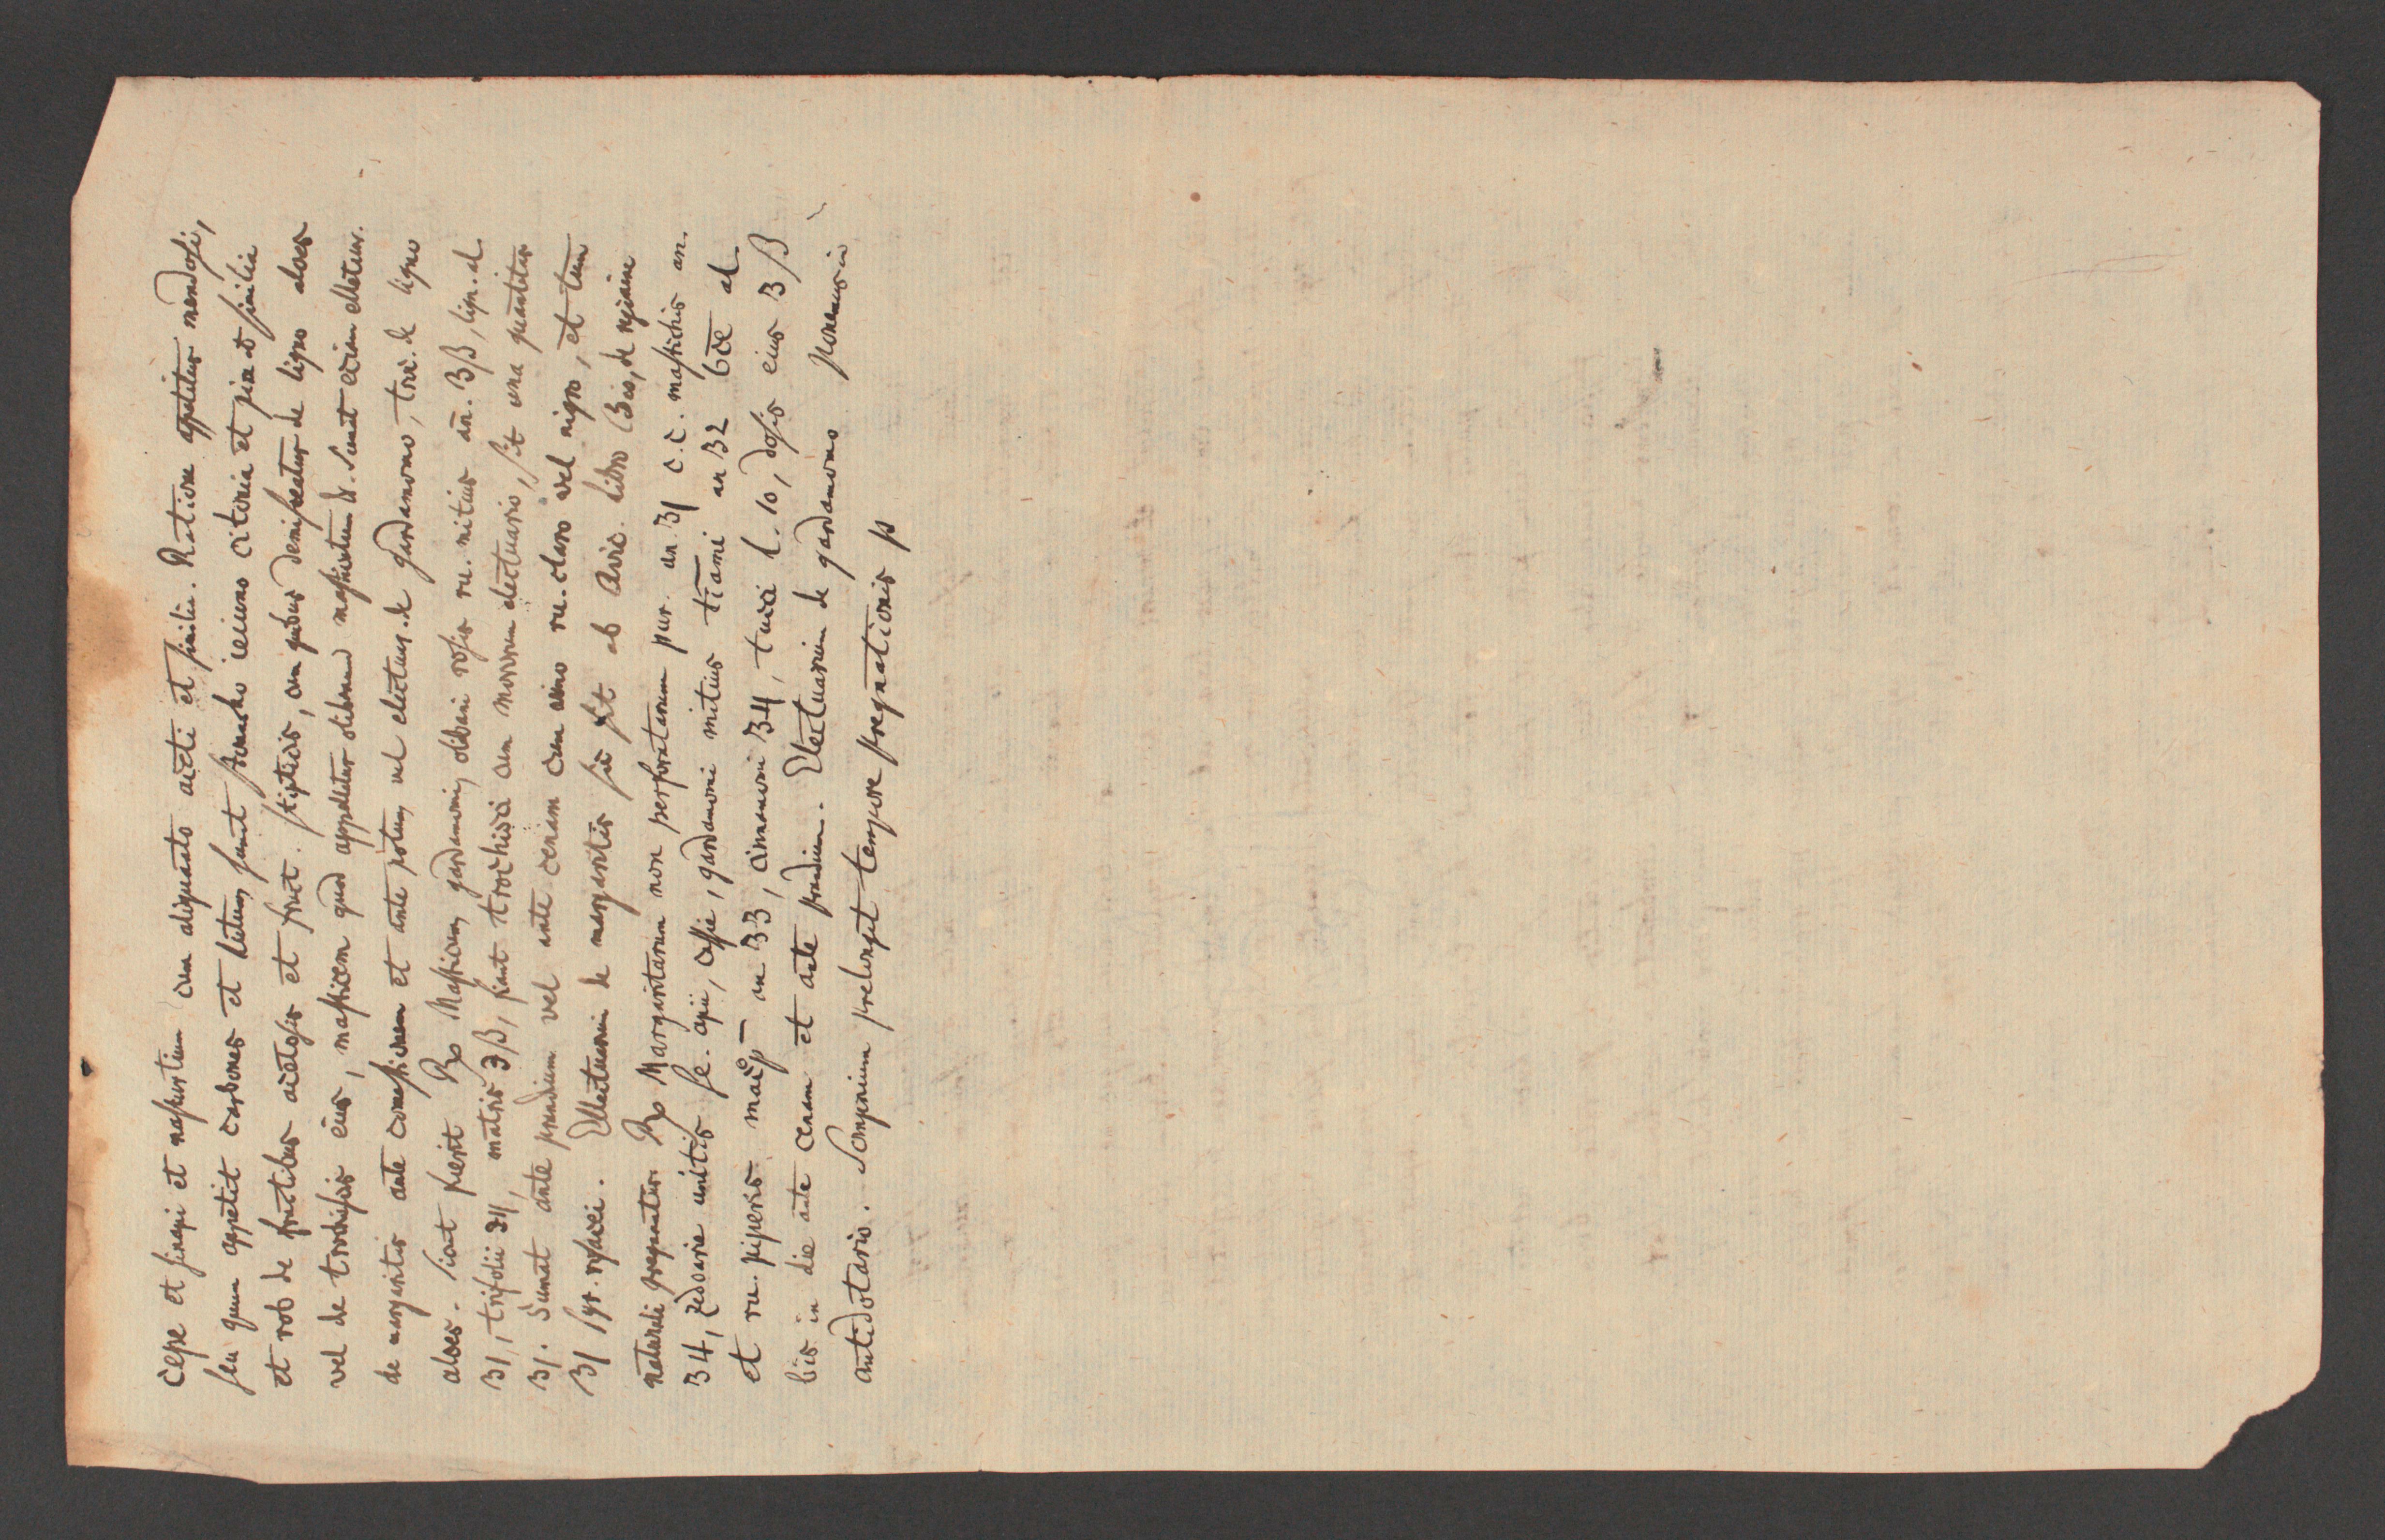 cepe et sinapi et nasturtium cum aliquanto aceti et similia. Ratione appetitus mendosi,
seu quum appetit carbones et lutum, sumat stomacho ieiuno citonia et pira et similia
et rob de fructibus acetosis et fruct. stipticis, cum quibus demisceatur de ligno aloes
vel de trochiscis eius, masticem quod appellatur olibanum masticatum &. sumat etiam electuar.
de margaritis ante comestionem et ante potum, vel electuar. de gardamomo, troc. de ligno
aloes. sicut fierit ℞ Masticum, gardamomi, olibani rosis ru. mitius añ. ʒß, lign. al.
ʒ1, trifolii ʒ11, matris ʒß, fiant trochisci cum morrum electuario, sit una quantitas
ʒ1. Sumat ante prandium vel ante cenam cum vino ru. claro vel nigro, et tum
ʒ1 syr. rosacei. Electuarium de margaritis sic fit ab Avic. libro Bes, de regimine
naturali pregnantis ℞ Margaritarum non perforatarum pur. an. ʒ1 c. c. mastichis an.
ʒ4, zedoarie unitis se. apii, cassie, gardamoni mitius an ʒ2 be al.
et ru. piperis an ʒ3, cinnamoni ʒ4, tucci l. 10, dosis eius ʒß
bis in die ante cenam et ante prandium. Electuarium de gardamomo ponemus in
antidotario. Sompnium prelongat tempore pregnationis